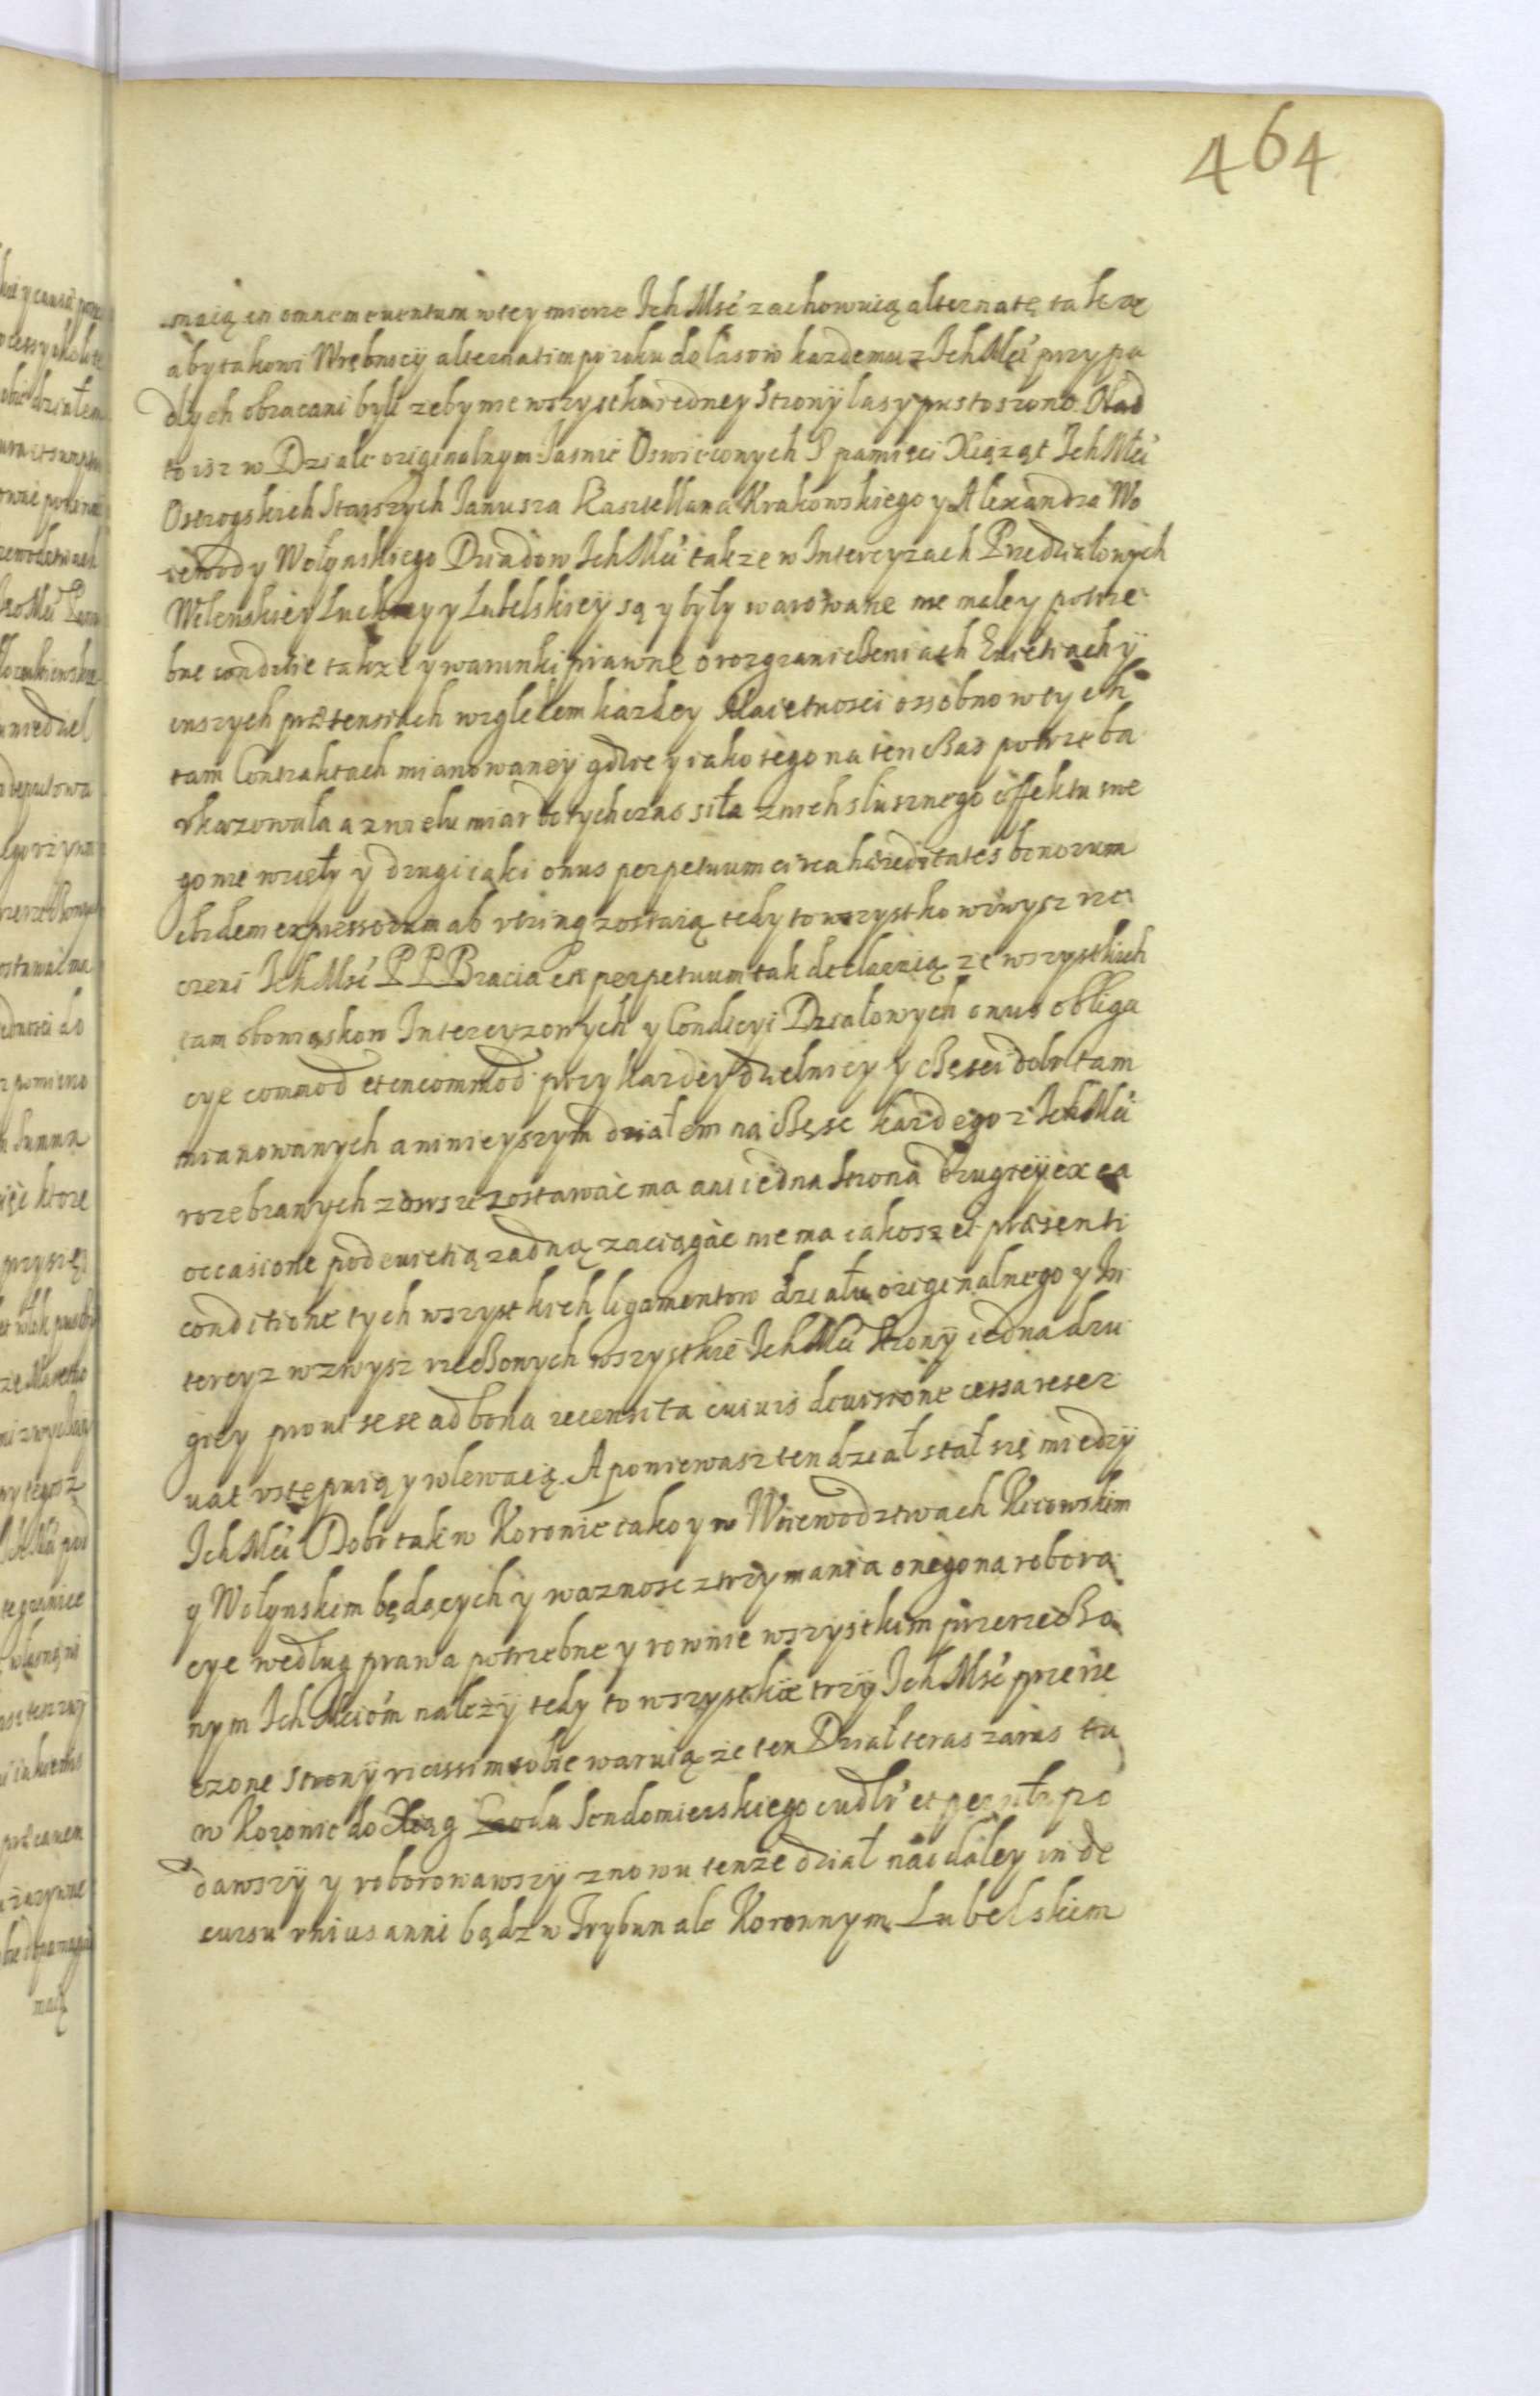 464
maią in omnem euentum wtey mierze Ich Mść zachowuią alternatę takze
aby takowi Wrębnicy alternatim po roku do lasow kazdemu z Ich Mći przypa
dłych obracani byli zeby nie wszystka iedney Strony lasy pustoszono. Nad
to isz w Dziale originalnym Iasnie Oswieconych S pamięci Xiąząt Ich Mći
Ostrogskich Starszych Ianusza Kasztellana Krakowskiego y Alexandra Wo
iewody Wołynskiego Dziadow Ich Mći także w Intercyzach Przedziałowych
Wilenskiey Luckiey y Lubelskiey są y były warowane nie małey potrze
bne conditie takze y warunki prawne o rozgraniczeniach Euictiach y
inszych prætensiach względem kazdey Maiętnosci ossobno w tych
tam Contraktach mianowaney gdzie y iako tego na ten czas potrzeba
vkazowała a z wielu miar dotychczas siła z nich slusznego effektu swe
go nie wzięły y drugi iaki onus perpetuum circa hæreditates bonorum
ibidem expressorum ab utrinq zostaią tedy to wszystko wzwysz rze
czeni Ich Mść PPP Bracia in perpetuum tak declaruią ze wszystkich
tam obowiąskow Intercyzowych y Condicyi Działowych onus obliga
cye commod et incommod przy kazdey dzielnicy y częsci dobr tam
mianowanych a ninieyszym działem na częsc kazdego z Ich Mći
rozebranych zawsze zostawać ma ani iedna Strona drugiey ex ea
occasione pod euictią zadną zaciągać nie ma iakosz et præsenti
conditione tych wszystkich ligamentow działu originalnego y In
tercyz wzwysz rzeczonych wszystkie Ich Mći Strony iedna dru
giey prout se se ad bona recensita cuiuis diuisione cessa reser
uat vstępuią y wlewaią. A poniewasz ten dział stał się miedzy
Ich Mći Dobr tak w Koronie iako y w Woiewodztwach Kiiowskim
y Wołynskim będących y waznosc ztrzymania onego na robora
cye według prawa potrzebne y rownie wszystkim przerzeczo
nym Ich Mciom należy tedy to wszystkie trzy Ich Mść przerze
czone Strony vicissim sobie waruią że ten Dział teras zaras tu
w Koronie do Xiąg Grodu Sendomierskiego et po
dawszy y roborowawszy znowu tenże dział naidaley in de
cursu vnius anni bądz w Trybunale Koronnym Lubelskim